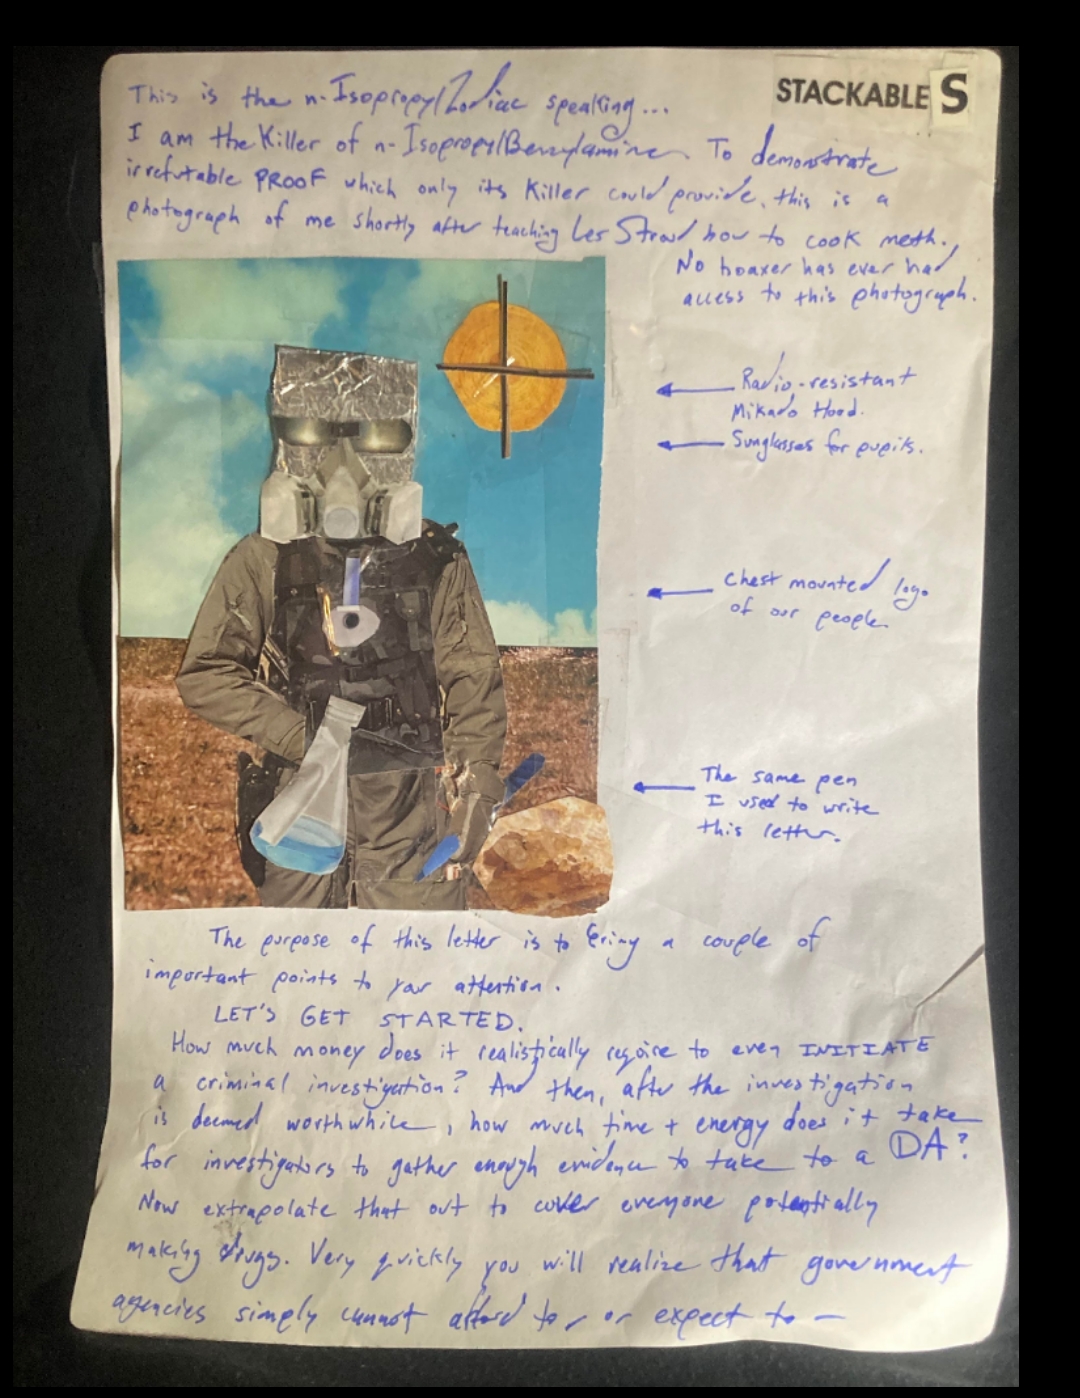 STACKABLE S
This is the n-Isopropyl/Zodiac speaking...
I am the Killer of n-Isopropyl/Benzylamine. To demonstrate
irrefutable PROOF which only its Killer could provide, this is a
photograph of me shortly after teaching Les Strad how to cook meth.
No hoaxer has ever had
access to this photograph.
Radio-resistant
Mikado Hood.
Sunglasses for pupils.
Chest mounted logo
of our people.
The same pen
I used to write
this letter.
The purpose of this letter is to bring a couple of
important points to your attention.
LET'S GET STARTED.
How much money does it realistically require to even INITIATE
a criminal investigation? And then, after the investigation
is deemed worthwhile, how much time + energy does it take
for investigators to gather enough evidence to take to a DA?
Now extrapolate that out to cover everyone potentially
making drugs. Very quickly you will realize that government
agencies simply cannot afford to, or expect to -